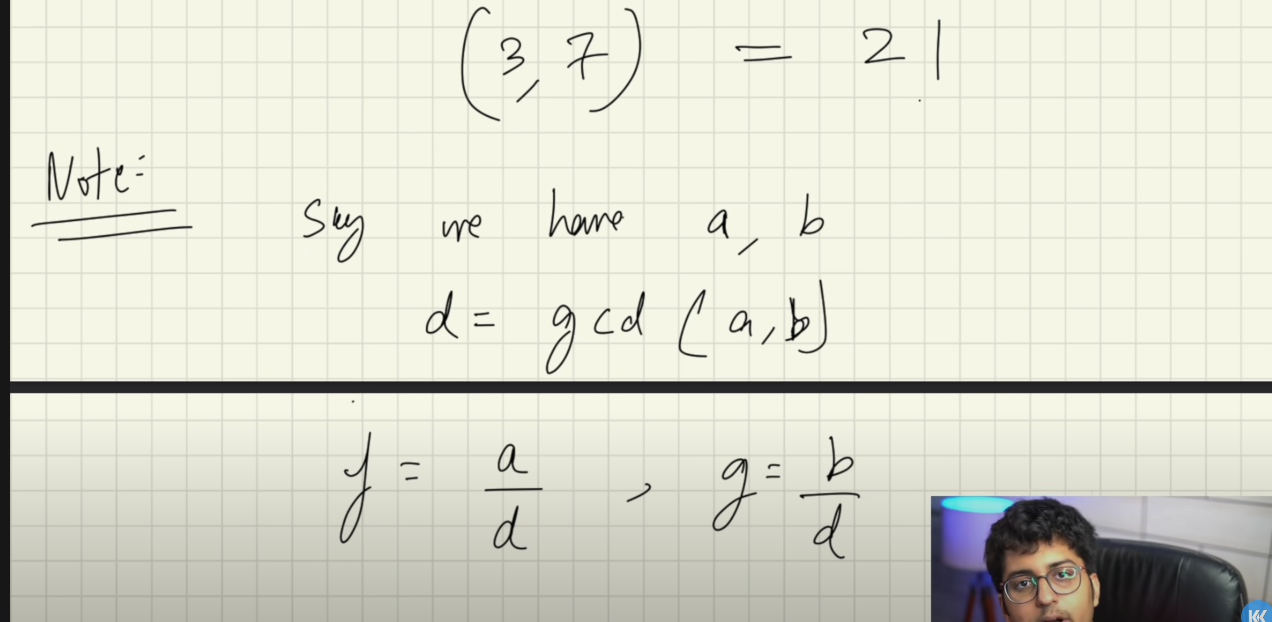 (3, 7) = 21
Note:
Say we have a, b
d = gcd (a, b)
f = a/d , g = b/d